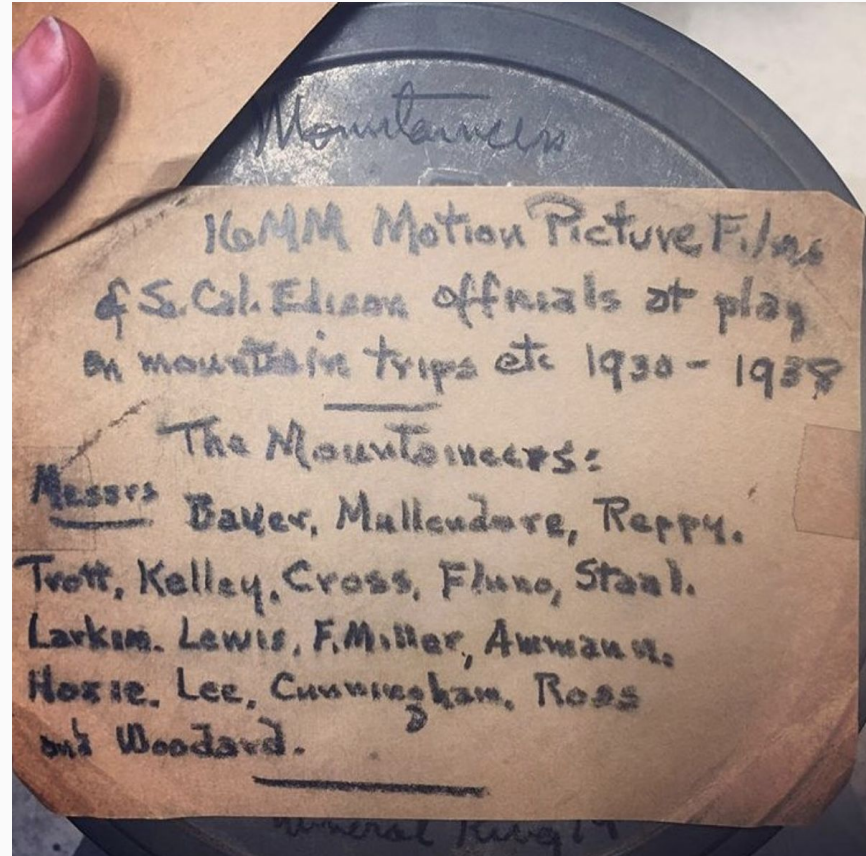 Mountaineers
16MM Motion Picture Films
of So. Cal. Edison officials at play
on mountain trips etc 1930 - 1938
The Mountaineers:
Messrs
Bauer, Mullendore, Reppy.
Trott, Kelley, Cross, Fluno, Staal.
Larkin. Lewis, F. Miller, Ammann.
Hoxie. Lee, Cunningham. Ross
and Woodard.
Mineral King